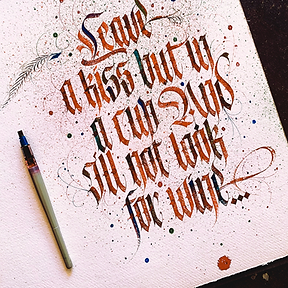 Leave
a kiss but in
a cup And
I'll not look
for wine...